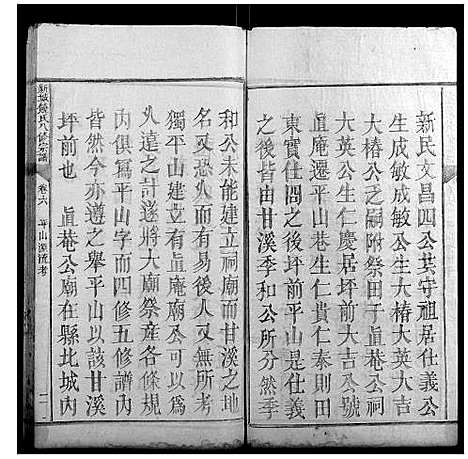 新民文昌四公共守祖居仕義公
生成敏成敏生大椿大英大吉
大椿公之嗣附祭田子眞庵公祠
大英公生仁慶居坪前大吉公號
眞庵遷平山巷生仁貴仁泰則田
東寶仕閣之後坪前平山是仕義
之後皆由甘溪季和公所分然季
和公未能建立祠廟而甘溪之地
名又恐別紊眞派又無所考
獨平山建立有眞庵公可以為
久遠之計遂將大廟祭產各條規
內俱寫平山字而四修五修譜內
皆然今亦遵之舉平山以該甘溪
坪前也 眞菴公廟在縣北城內
氏八修宗譜
卷六
平山源流考